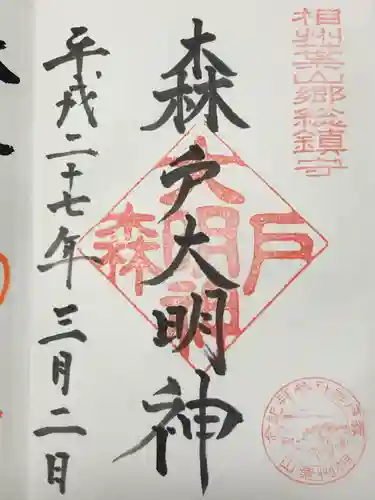 相州葉山郷総鎮守
森戸大明神
森戸大明神
平成二十七年三月二日